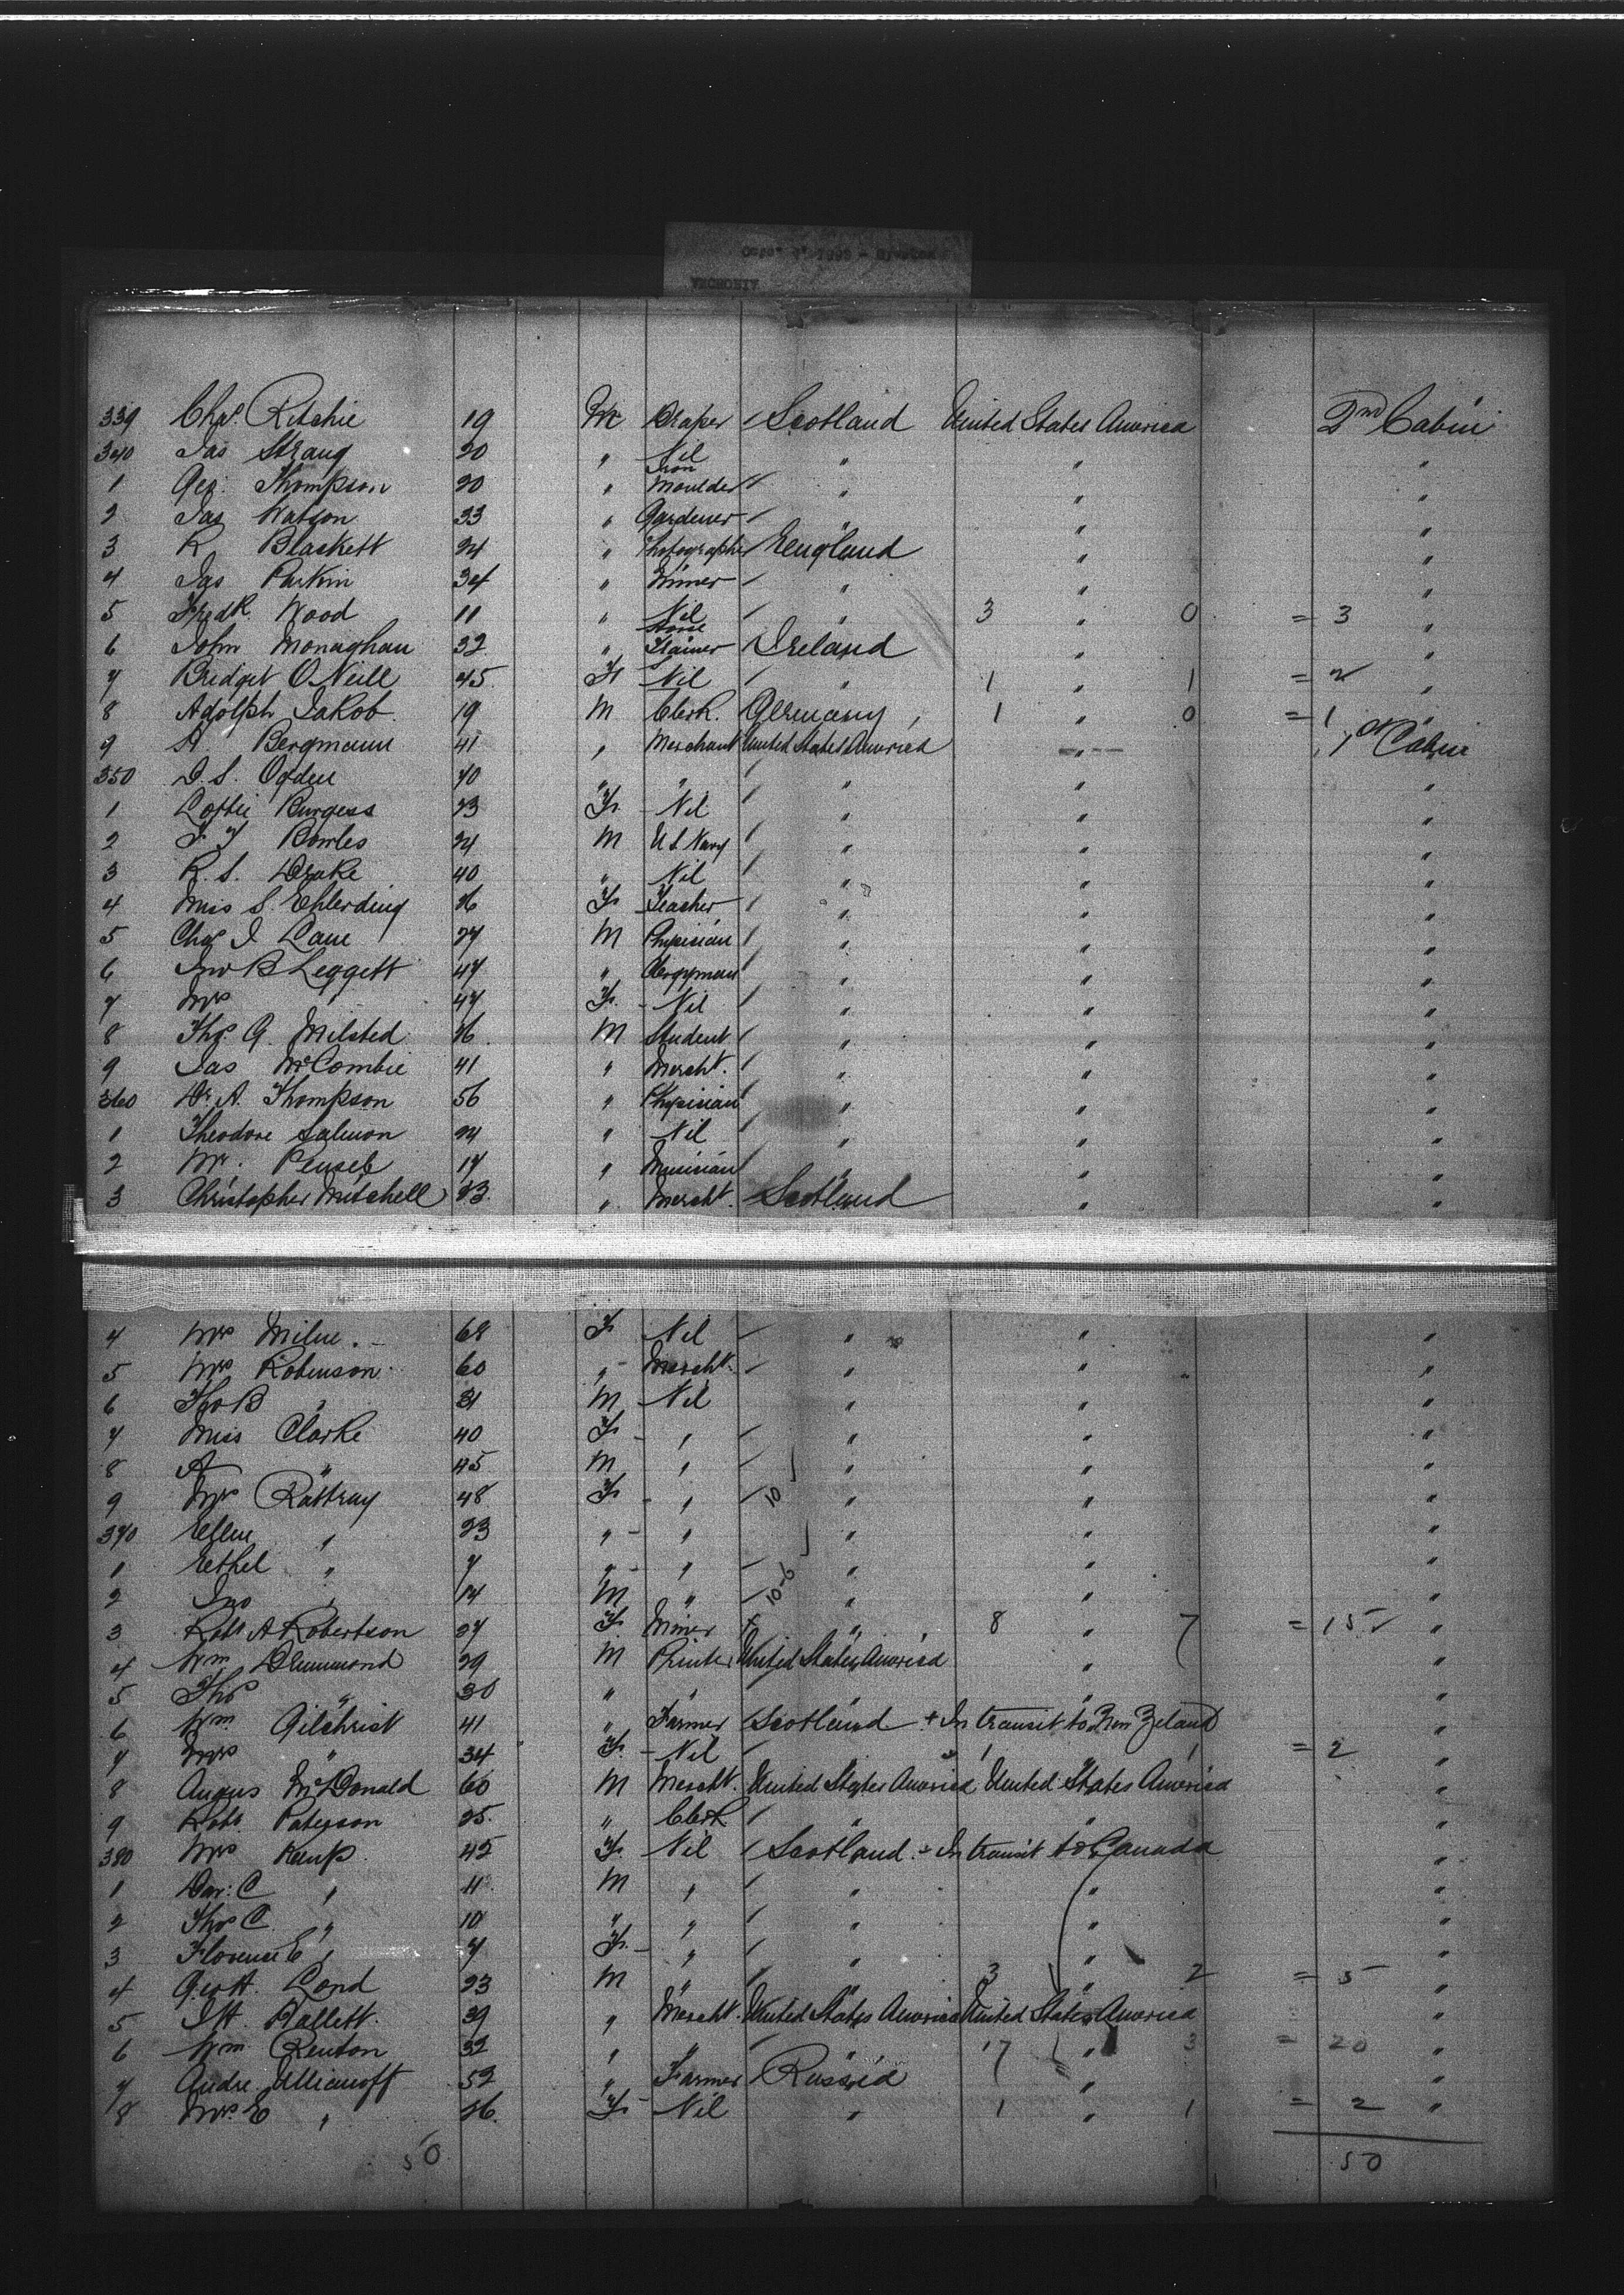 339 Chas. Ritchie 19 M Draper / Scotland United States America 2nd Cabin
340 Jas Strang 20 " Nil " " "
1 Geo. Thompson 20 " Iron Moulder / " " "
2 Jas Watson 33 " Gardener / " " "
3 R. Blackett 24 " Photographer / England " "
4 Jas Parkin 34 " Miner / " " "
5 Fredk. Wood 11 " Nil / " 3 " 0 = 3 "
6 John Monaghan 32 " Horse Trainer / Ireland " "
7 Bridget O'Neill 45 F Nil / " 1 " 1 = 2 "
8 Adolph Jakob 19 M Clerk. Germany 1 " 0 = 1 "
9 A. Bergmann 41 " Merchant United States America " 1st Cabin
350 D. S. Ogden 40 " " / " " "
1 Lottie Burgess 23 F Nil / " " "
2 F. T. Bowles 24 M U S Navy / " " "
3 R. S. Drake 40 " Nil / " " "
4 Miss S. Ehlerding 26 F Teacher / " " "
5 Chas J Lane 27 M Physician / " " "
6 Jno B Leggett 47 " Clergyman / " " "
7 Mrs " 47 F. Nil / " " "
8 Thos. G. Milsted 26 M Student / " " "
9 Jas McCombie 41 " Mercht. / " " "
360 Dr. A. Thompson 56 " Physician / " " "
1 Theodore Salmon 24 " Nil / " " "
2 Mr. 17 " Musician / " " "
3 Christopher Mitchell 23 " Mercht. Scotland " "
4 Mrs Milne 68 F Nil / " " "
5 Mrs Robinson 60 " Mercht. / " " "
6 Thos B " 31 M Nil " " "
7 Miss Clarke 40 F " / " " "
8 A " 45 M " / " " "
9 Mrs Rattray 48 F " / 10 " " "
370 Ellen " 23 " " " " "
1 Ethel " 7 " " / " " "
2 Jno " 14 M " / 10-6 " " "
3 Robt A Robertson 27 F. Miner " 8 " 7 = 15 "
4 Wm Drummond 29 M Printer United States America " "
5 Thos " 30 " " " " "
6 Wm. Gilchrist 41 " Farmer / Scotland + In transit to New Zeland "
7 Mrs " 34 F. Nil / " 1 1 = 2 "
8 Angus McDonald 60 M Mercht. United States America United States America "
9 Robt. Paterson 25. " Clerk / " " "
380 Mrs Kemp 42 F. Nil / Scotland + In transit to Canada "
1 Dav: C " 11 M " / " " "
2 Thos C. " 10 " " / " " "
3 Florence E " 7 F. " / " " "
4 Geo H. Lond 23 M " / " 3 " 2 = 5 "
5 J H. Hallett. 39 " Mercht. United States America United States America "
6 Wm Renton 32 " " / " 17 " 3 = 20 "
7 Andre Ullianoff 52 " Farmer / Russia " "
8 Mrs. E " 26. F Nil " 1 " 1 = 2 "
50 50